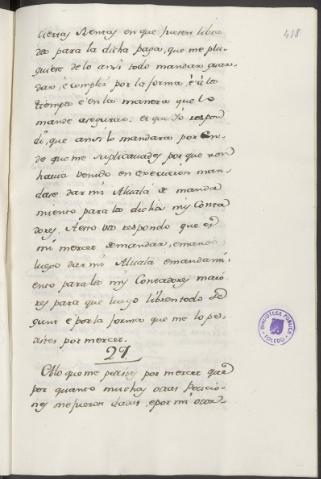 418
ciertas Rentas en que fuesen libra
das para la dicha paga, que me plu
guiese de lo ansi todo mandar, guar
dar, é complir por la forma, é á los
tiempos é en la manera que lo
mande asegurar. et que Yo respon
dí, que ansi lo mandara por en-
de que me suplicavades por que non
havia venido en execucion man-
dase dar mi Alvalá de manda
miento para los dichos mis Conta
dores, A esto vos respondo que es
mi merced de mandar, e mando
luego dar mi Alvala e mandami
ento para los mis Contadores maio
res para que luego libren todo se
gunt e por la forma que me lo pe-
distes por merced.
29
Otro que me pedistes por merced que
por quanto muchas otras Peticio-
nes me fueron dadas, e por mi otor-
BIBLIOTECA PUBLICA
TOLEDO